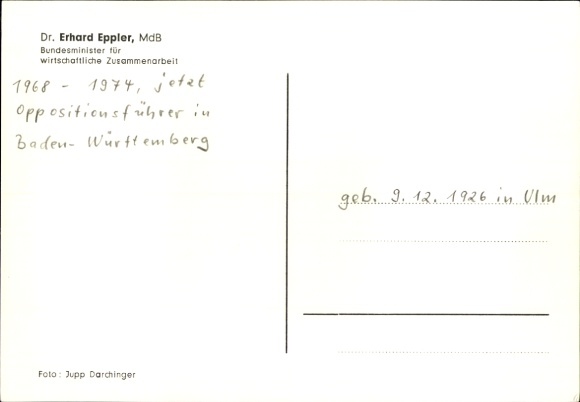 Dr. Erhard Eppler, MdB
Bundesminister für
wirtschaftliche Zusammenarbeit
1968 - 1974, jetzt
Oppositionsführer in
Baden-Württemberg
geb. 9.12.1926 in Ulm
Foto: Jupp Darchinger